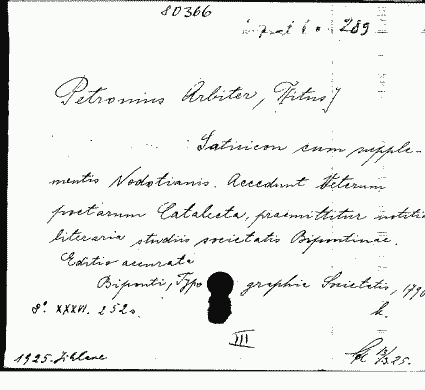 80366
289
Petronius Arbiter, Titus]
Satiricon cum supple-
mentis Nodotianis. Accedunt Veterum
poetarum Catalecta, praemittitur notitia
literaria studiis societatis Bipontinae.
Editio accurata
Biponti, Typographia Societatis, 1790
8° XXXVI. 252 s. k.
III
1925.